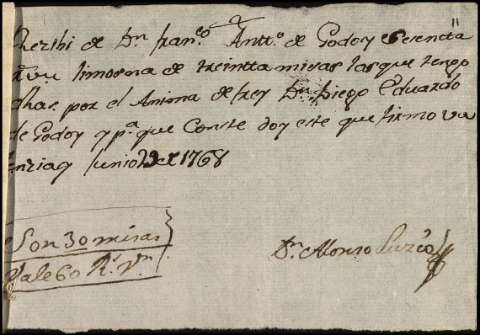 Rezibi de Dn. franco. Antto. de Godoy sesentta
Rs. vn. limosna de treintta misas las que tengo
dhas. por el Anima de frey Dn. Diego Eduardo
de Godoy y pa. que Conste doy este que firmo
y Junio 23 de 1768
Son 30 misas
Vale 60 Rs. Vn.
Dn. Alonso